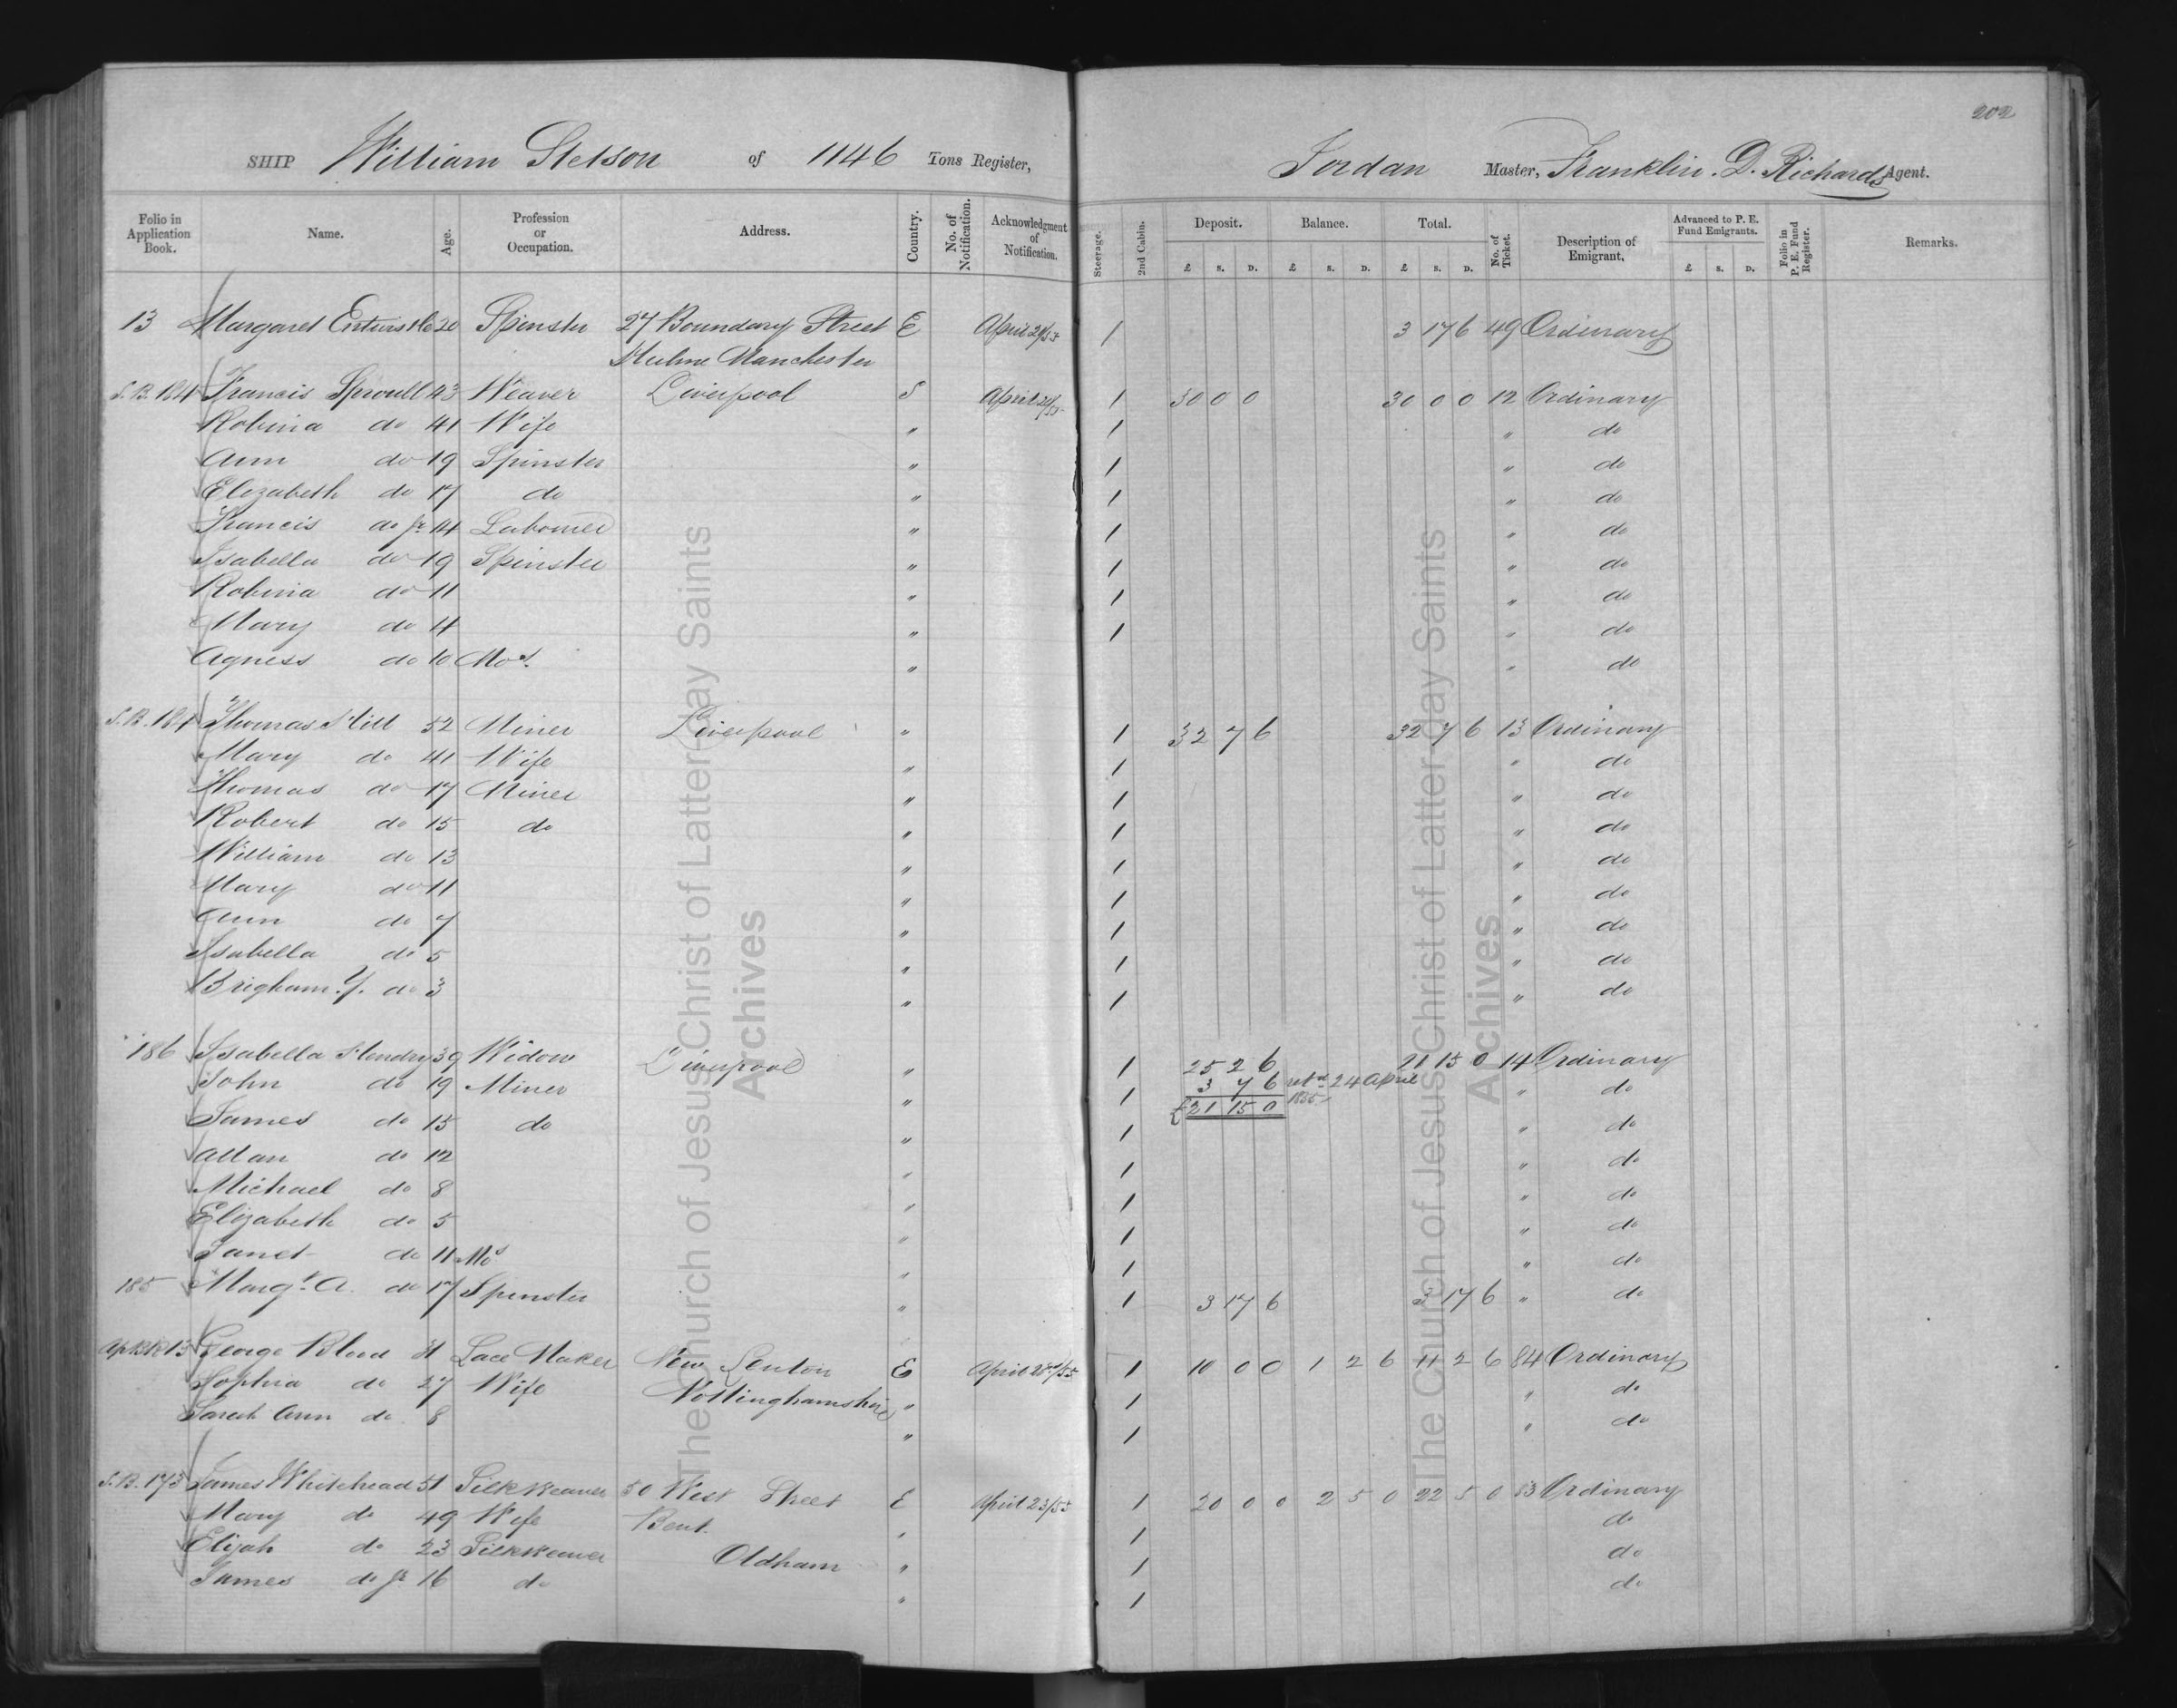 202
SHIP William Stetson of 1146 Tons Register, Jordan Master, Franklin. D. Richards Agent.
Folio in Application Book. Name. Age. Profession or Occupation. Address. Country. No. of Notification. Acknowledgment of Notification. Steerage. 2nd Cabin. Deposit. £ s. D. Balance. £ s. D. Total. £ s. D. No. of Ticket. Description of Emigrant. Advanced to P. E. Fund Emigrants. £ s. D. Folio in P. E. Fund Register. Remarks.
13 Margaret Entwistle 20 Spinster 27 Boundary Street E April /55 1 3 17 6 49 Ordinary
Hulme Manchester
S.B. 184 Francis Sproull 43 Weaver Liverpool S April /55 1 30 0 0 30 0 0 12 Ordinary
Robina do 41 Wife " 1 " do
Ann do 19 Spinster " 1 " do
Elizabeth do 17 do " 1 " do
Francis do Jr 14 Labourer " 1 " do
Isabella do 19 Spinster " 1 " do
Robina do 11 " 1 " do
Mary do 4 " 1 " do
Agness do 10 Mos. " " do
S.B. 184 Thomas Hill 52 Miner Liverpool " 1 32 7 6 32 7 6 13 Ordinary
Mary do 41 Wife " 1 " do
Thomas do 17 Miner " 1 " do
Robert do 15 do " 1 " do
William do 13 " 1 " do
Mary do 11 " 1 " do
Ann do 7 " 1 " do
Isabella do 5 " 1 " do
Brigham. Y. do 3 " 1 " do
186 Isabella Hendry 39 Widow Liverpool " 1 25 2 6 21 15 0 14 Ordinary
John do 19 Miner " 1 3 7 6 retd 24 April " do
£21 15 0 1855
James do 15 do " 1 " do
Allan do 12 " 1 " do
Michael do 8 " 1 " do
Elizabeth do 5 " 1 " do
Janet do 11 Mos " 1 " do
185 Margt. A. do 17 Spinster " 1 3 17 6 3 17 6 " do
Ap. BK 13 George Blood 31 Lace Maker New Lenton E April /55 1 10 0 0 1 2 6 11 2 6 84 Ordinary
Sophia do 27 Wife Nottinghamshire " 1 " do
Sarah Ann do 8 " 1 " do
S.B. 173 James Whitehead 51 Silk Weaver 50 West Street E April 23/55 1 20 0 0 2 5 0 22 5 0 83 Ordinary
Mary do 49 Wife Bent. " 1 do
Elijah do 23 Silk Weaver Oldham " 1 do
James do Jr 16 do " 1 do
The Church of Jesus Christ of Latter-day Saints
Archives
The Church of Jesus Christ of Latter-day Saints
Archives